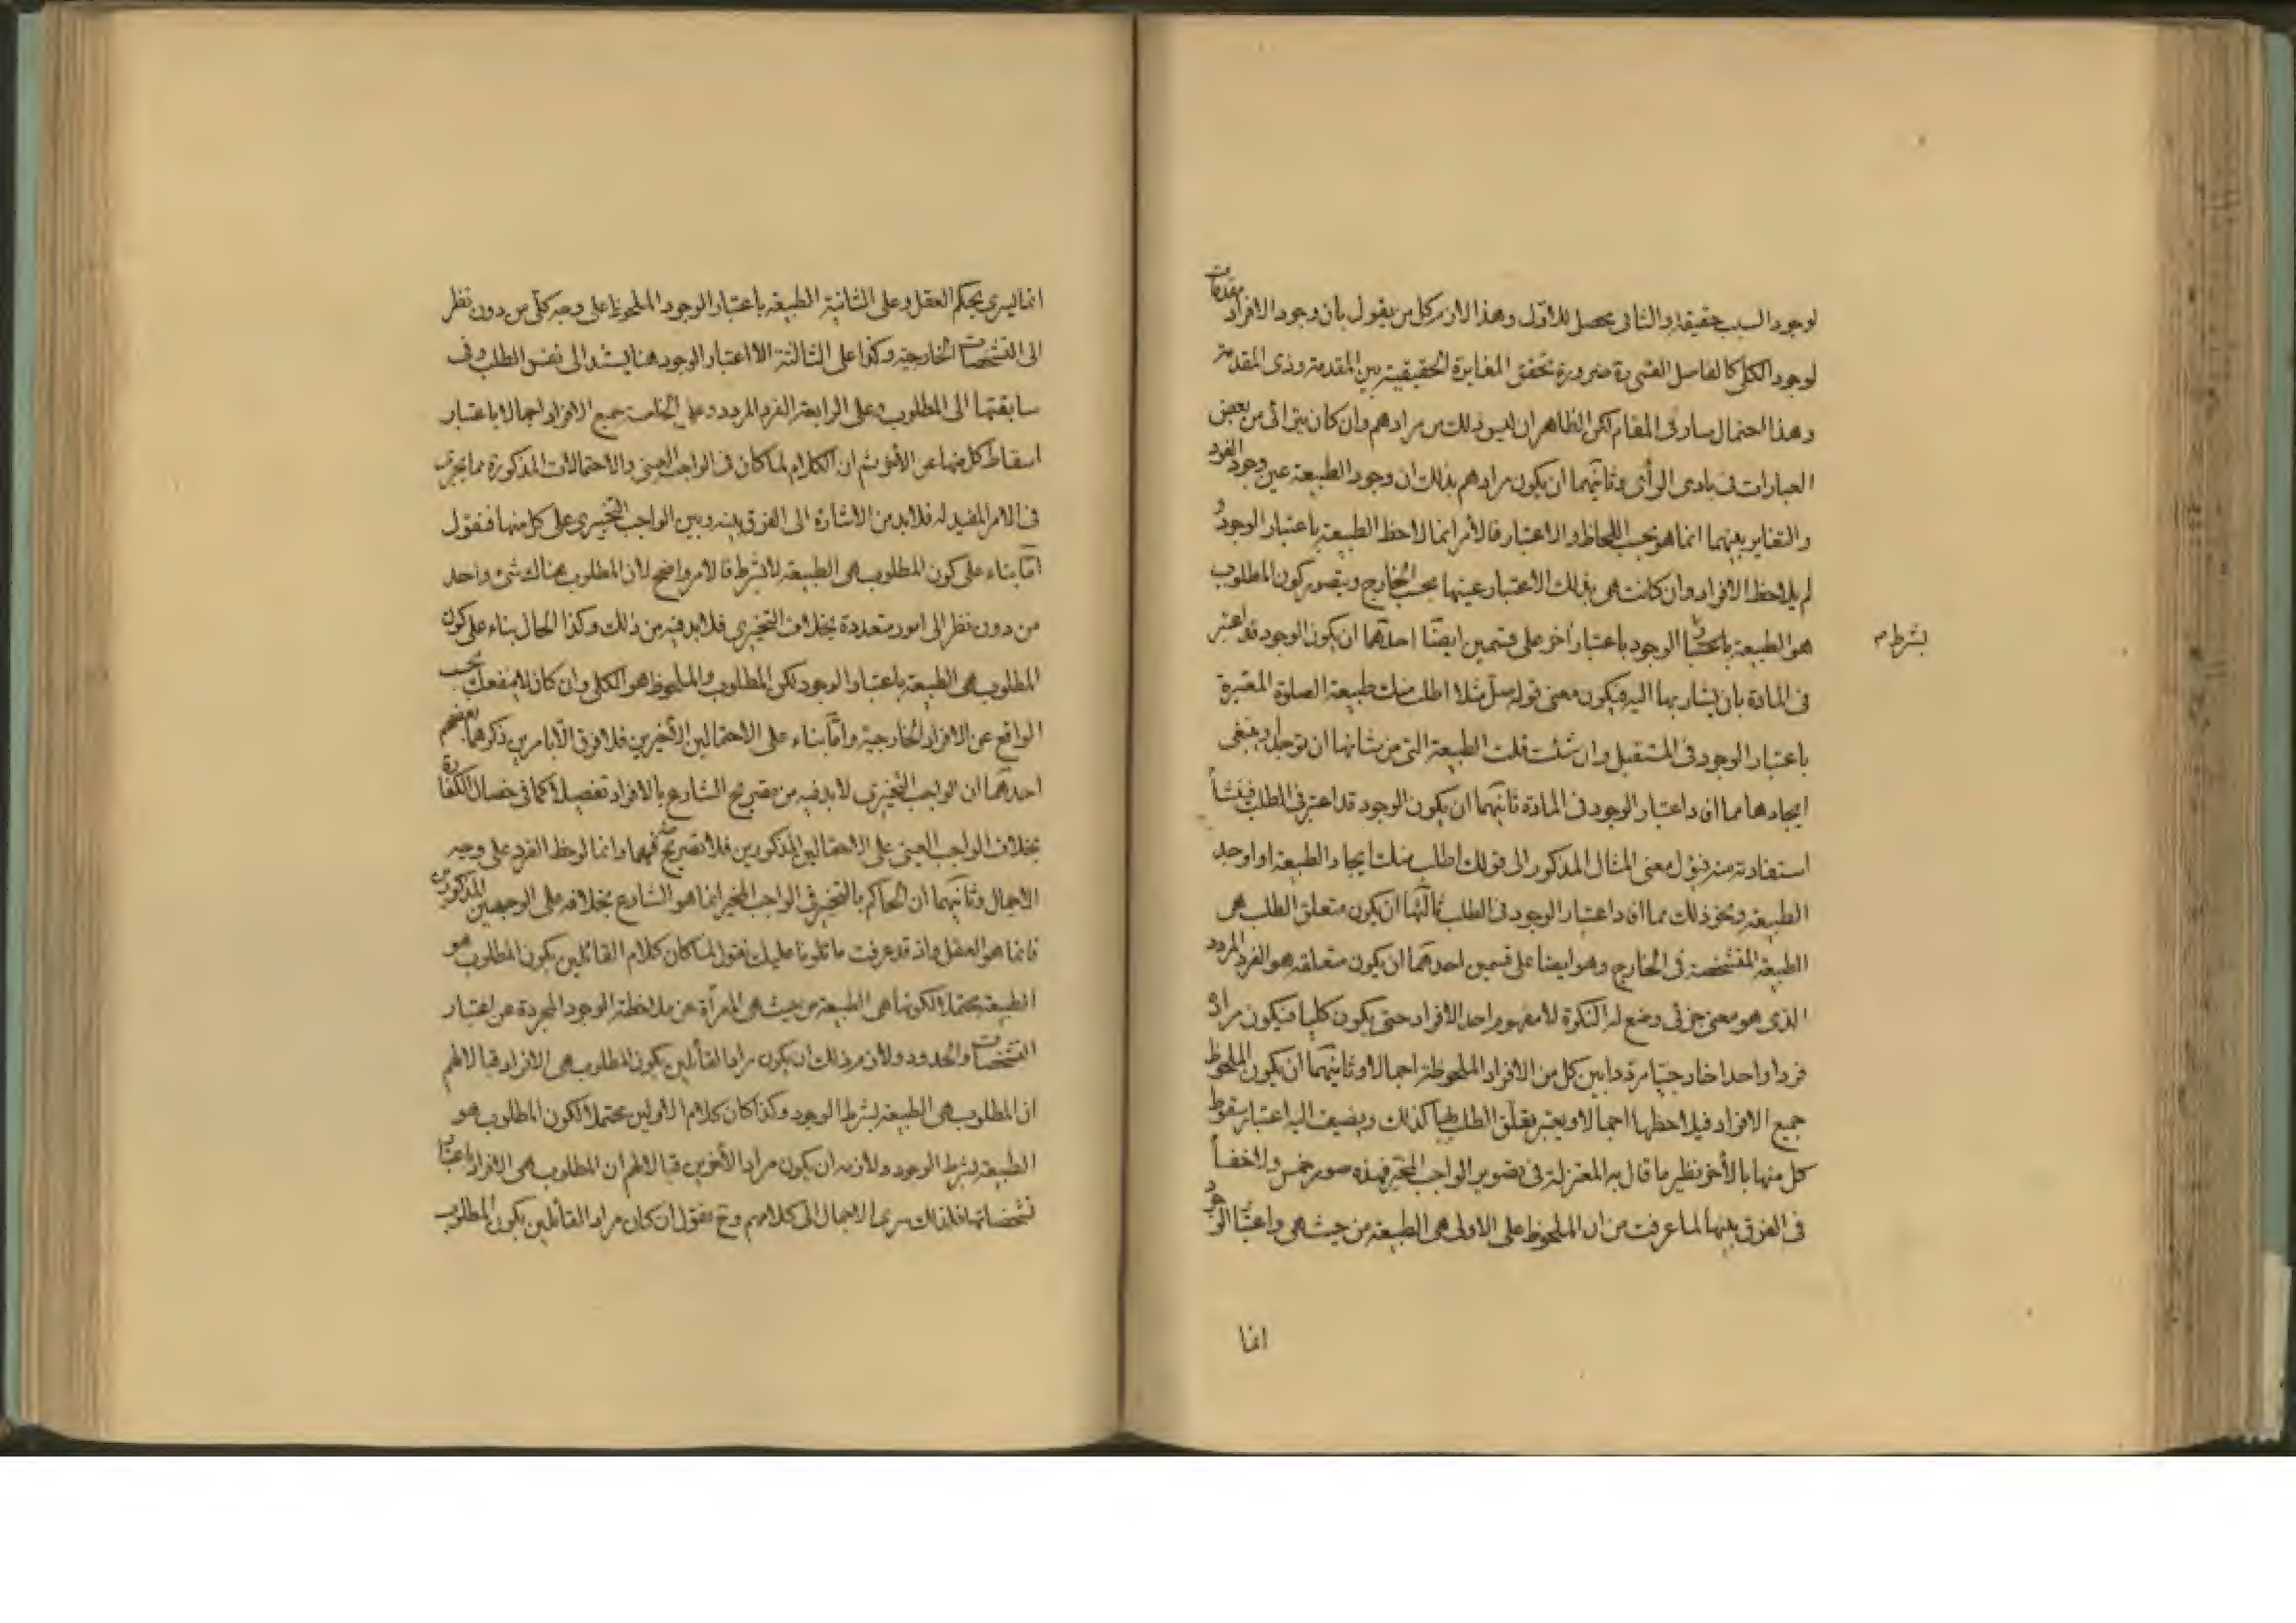 لوجود السبب حقيقة والثانى محصل للاول وهذا لازم كل من يقول بان وجود الافراد مقدمات
لوجود الكلى كالفاضل القمى ره ضرورة تحقق المغايرة الحقيقية بين المقدمة وذى المقدمة
وهذا احتمال سار فى المقام لكن الظاهر ان ليس ذلك من مرادهم وان كان يترائى من بعض
العبارات فى بادى الرأى وثانيهما ان يكون مرادهم بذلك ان وجود الطبيعة عين وجود الفرد
والتغاير بينهما انما هو بحسب اللحاظ والاعتبار فالامر انما لاحظ الطبيعة باعتبار الوجود و
لم يلاحظ الافراد وان كانت هى بذلك الاعتبار عينها بحسب الخارج ويتصور كون المطلوب
هو الطبيعة باعتبار الوجود باعتبار اخر على قسمين ايضا احدهما ان يكون الوجود قد اعتبر
بشرط م
فى المادة بان يشار بها اليه فيكون معنى قوله صل مثلا اطلب منك طبيعة الصلوة المعتبرة
باعتبار الوجود فى المستقبل وان شئت قلت الطبيعة التى من شانها ان توجد وينبغى
ايجادها مما افاد اعتبار الوجود فى المادة ثانيهما ان يكون الوجود قد اعتبر فى الطلب فينشأ
استفادته منه فيؤل معنى المثال المذكور الى قولك اطلب منك ايجاد الطبيعة او اوجد
الطبيعة ونحو ذلك مما افاد اعتبار الوجود فى الطلب ثالثها ان يكون متعلق الطلب هى
الطبيعة المتشخصة فى الخارج وهو ايضا على قسمين احدهما ان يكون متعلقه هو الفرد المردد
الذى هو معنى جزئى وضع له النكرة لا مفهوم احد الافراد حتى يكون كليا فيكون مراده
فردا واحدا خارجيا مرددا بين كل من الافراد الملحوظة اجمالا وثانيهما ان يكون الملحوظ
جميع الافراد فيلاحظها اجمالا ويعتبر تعلق الطلب بها كذلك ويضيف اليه اعتبار سقوط
كل منها بالاخر نظير ما قال به المعتزلة فى تصوير الواجب المخير فهذه صور خمس ولا خفاء
فى الفرق بينها لما عرفت من ان الملحوظ على الاولى هى الطبيعة من حيث هى واعتبار الوجود
انما
انما يسرى بحكم العقل وعلى الثانية الطبيعة باعتبار الوجود الملحوظ على وجه كلى من دون نظر
الى التشخصات الخارجية وكذا على الثالثة الا اعتبار الوجود هنا يستند الى نفس الطلب وفى
سابقتها الى المطلوب وعلى الرابعة الفرد المردد وعلى الخامسة جميع الافراد اجمالا باعتبار
اسقاط كل منها عن الاخر ثم ان الكلام لما كان فى الواجب العينى والاحتمالات المذكورة مما تجرى
فى الامر المفيد له فلا بد من الاشارة الى الفرق بينه وبين الواجب التخييرى على كل منها فنقول
اما بناء على كون المطلوب هى الطبيعة لا بشرط فالامر واضح لان المطلوب هناك شئ واحد
من دون نظر الى امور متعددة بخلاف التخييرى فلا بد فيه من ذلك وكذا الحال بناء على كون
المطلوب هى الطبيعة باعتبار الوجود لكن المطلوب والملحوظ هو الكلى وان كان لا ينفعك بحسب
الواقع عن الافراد الخارجية واما بناء على الاحتمالين الاخيرين فلا فرق الا بامرين ذكرهما بعضهم
احدهما ان الواجب التخييرى لا بد فيه من تصريح الشارع بالافراد تفصيلا كما فى خصال الكفارة
بخلاف الواجب العينى على الاحتمالين المذكورين فلا تصريح فيهما وانما لوحظ الفرد على وجه
الاجمال وثانيهما ان الحاكم بالتخيير فى الواجب المخير انما هو الشارع بخلافه على الوجهين المذكورين
فانما هو العقل واذ قد عرفت ما تلونا عليك نقول لما كان كلام القائلين بكون المطلوب هو
الطبيعة محتملا لكونها هى الطبيعة من حيث هى المعرأة عن ملاحظة الوجود المجردة عن اعتبار
التشخصات والحدود ولازم ذلك ان يكون مراد القائلين بكون المطلوب هى الافراد قبالا لهم
ان المطلوب هى الطبيعة بشرط الوجود وكذا كان كلام الاولين محتملا لكون المطلوب هو
الطبيعة بشرط الوجود ولازمه ان يكون مراد الاخرين قبالا لهم ان المطلوب هى الافراد باعتبار
تشخصاتها فلذلك سرى الاجمال الى كلامهم وح نقول ان كان مراد القائلين بكون المطلوب